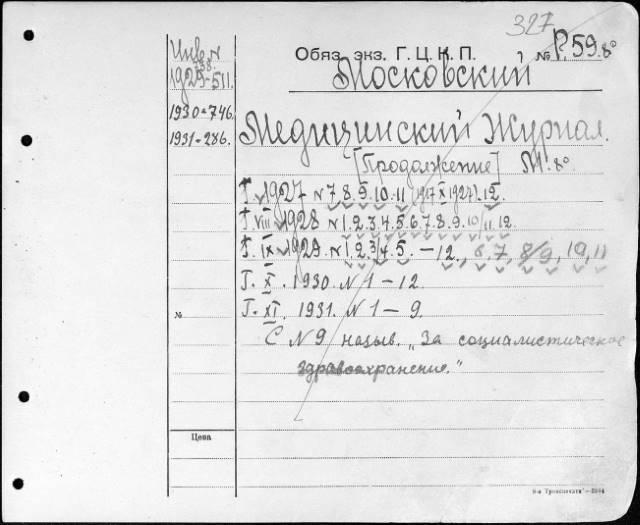 327
Обяз. экз. Г. Ц. К. П. № Р. 59. 8°
Инв. №
138.
1929-511.
1930-746.
1931-286.
Московский
Медицинский Журнал.
[Продолжение] М. 8°
Т. 1927 № 7. 8. 9. 10. 11 1927). 12.
Т. VIII 1928 № 1. 2. 3. 4. 5. 6. 7. 8. 9. 10/11. 12.
Т. IX 1929. № 1. 2. 3/4. 5. – 12., 6, 7, 8/9, 10, 11
Т. X. 1930. № 1 – 12.
Т. XI. 1931. № 1 – 9.
№
С № 9 назыв. „За социалистическое
здравоохранение."
Цена